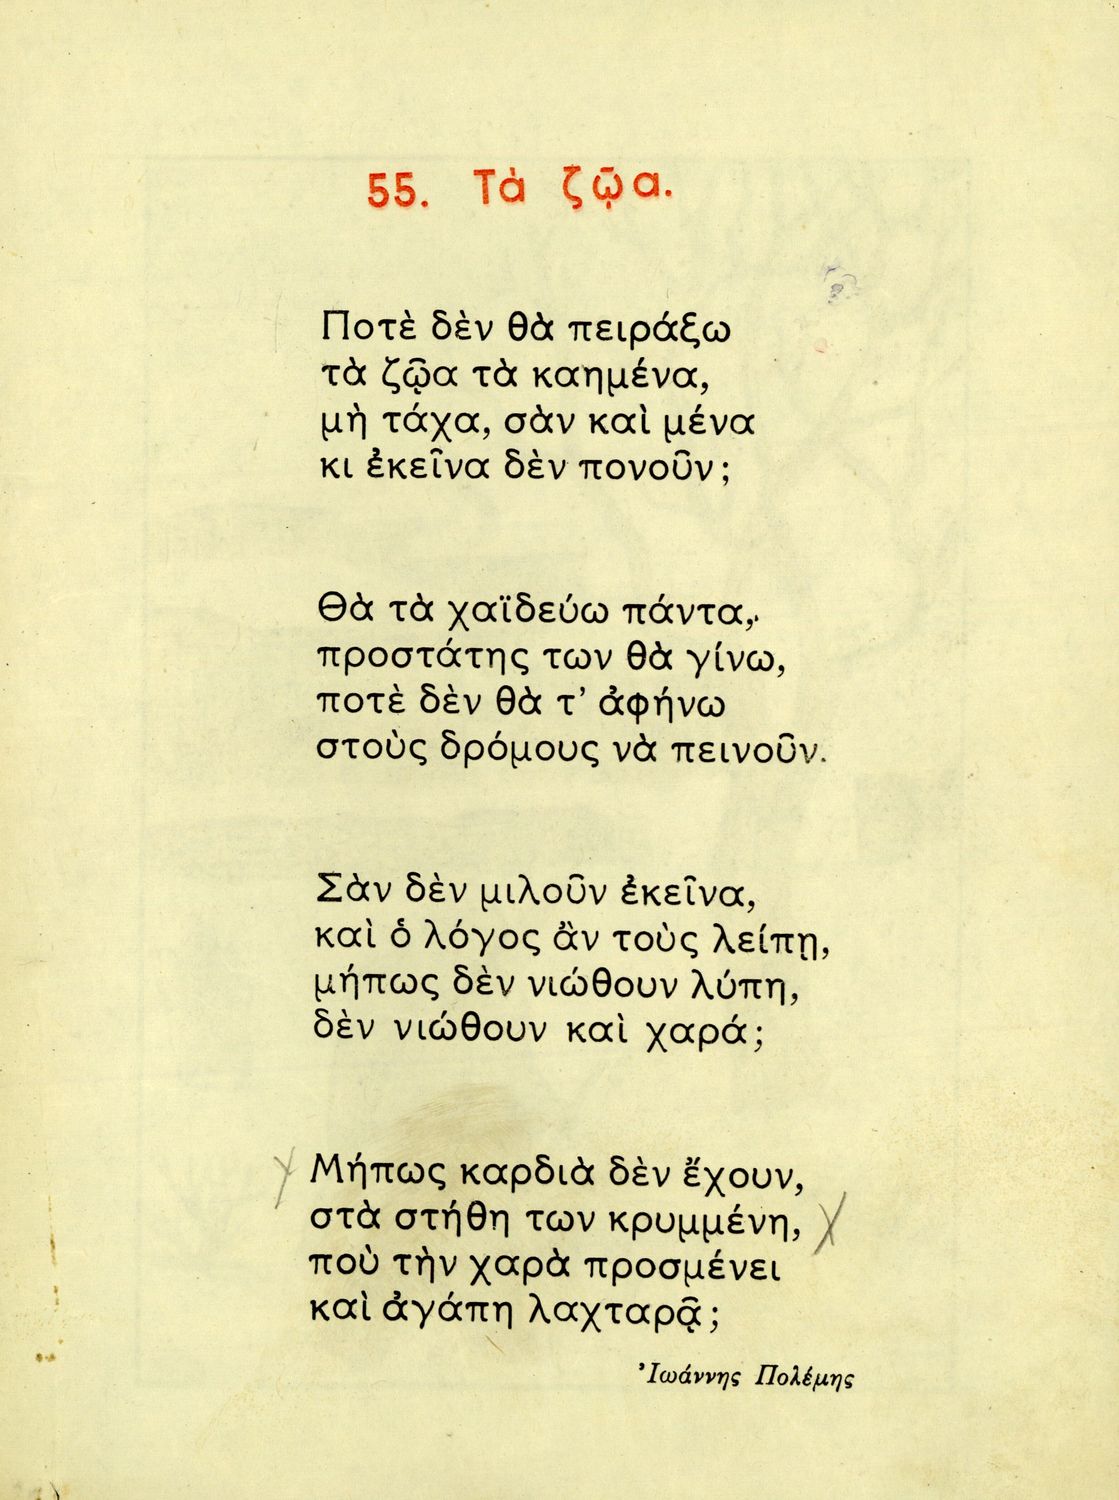 55. Τὰ ζῷα.
Ποτὲ δὲν θὰ πειράξω
τὰ ζῷα τὰ καημένα,
μὴ τάχα, σὰν καὶ μένα
κι ἐκεῖνα δὲν πονοῦν;
Θὰ τὰ χαϊδεύω πάντα,
προστάτης των θὰ γίνω,
ποτὲ δὲν θὰ τ' ἀφήνω
στοὺς δρόμους νὰ πεινοῦν.
Σὰν δὲν μιλοῦν ἐκεῖνα,
καὶ ὁ λόγος ἂν τοὺς λείπῃ,
μήπως δὲν νιώθουν λύπη,
δὲν νιώθουν καὶ χαρά;
Μήπως καρδιὰ δὲν ἔχουν,
στὰ στήθη των κρυμμένη,
ποὺ τὴν χαρὰ προσμένει
καὶ ἀγάπη λαχταρᾷ;
Ἰωάννης Πολέμης